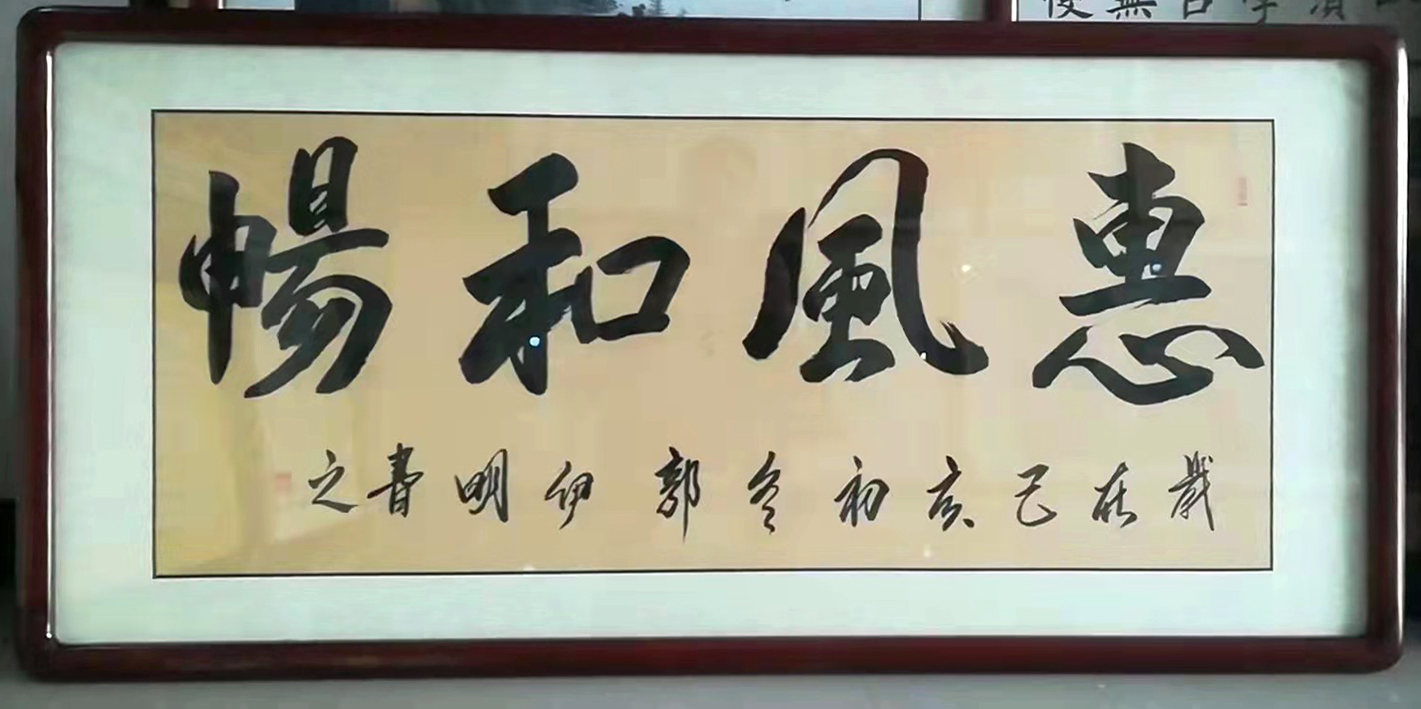 惠風和暢
歲在己亥初冬郭伊明書之